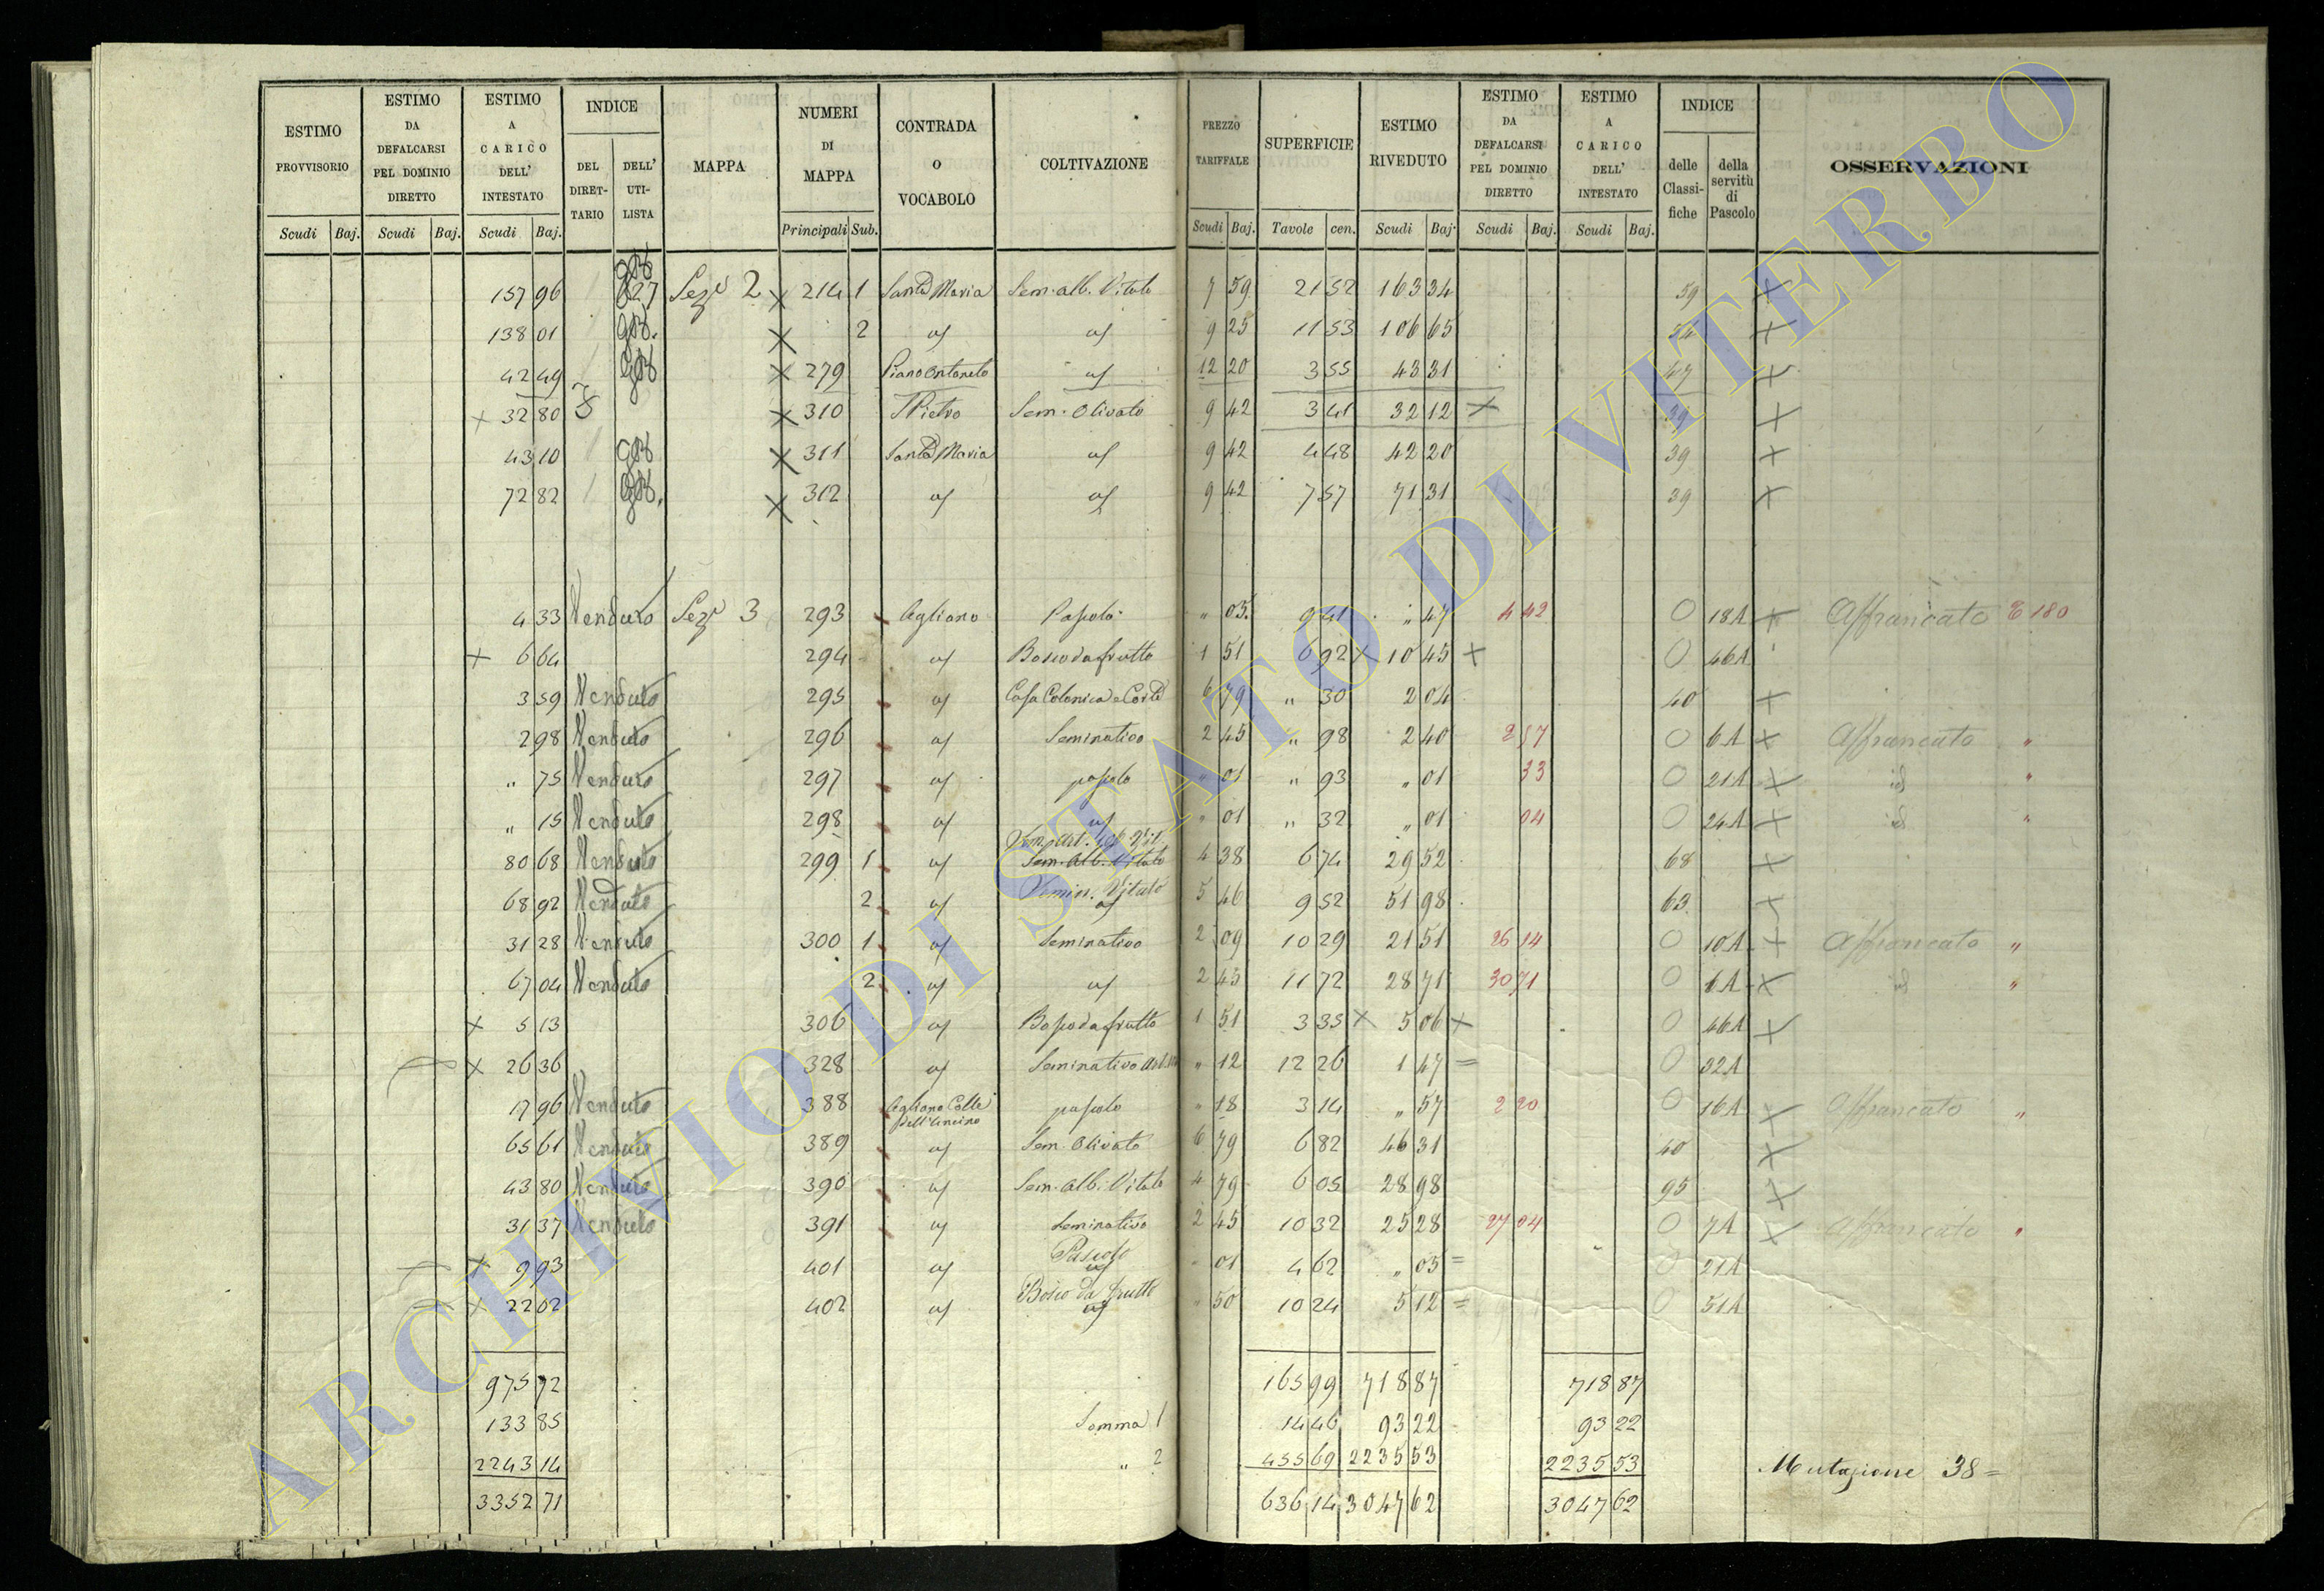 ESTIMO PROVVISORIO | ESTIMO DA DEFALCARSI PEL DOMINIO DIRETTO | ESTIMO A CARICO DELL' INTESTATO | INDICE | MAPPA | NUMERI DI MAPPA | CONTRADA O VOCABOLO | COLTIVAZIONE | PREZZO TARIFFALE | SUPERFICIE | ESTIMO RIVEDUTO | ESTIMO DA DEFALCARSI PEL DOMINIO DIRETTO | ESTIMO A CARICO DELL' INTESTATO | INDICE | OSSERVAZIONI
DEL DIRET-TARIO | DELL' UTI-LISTA | delle Classi-fiche | della servitù di Pascolo
Scudi | Baj. | Scudi | Baj. | Scudi | Baj. | Principali | Sub. | Scudi | Baj. | Tavole | cen. | Scudi | Baj. | Scudi | Baj. | Scudi | Baj.
157 96 | Sez.e 2 | X 214 | 1 | Santa Maria | Sem. alb. Vitato | 7 59 | 21 52 | 163 34 | 59 | X
138 01 | X | 2 | 9 25 | 11 53 | 106 65 | X
42 49 | X 279 | 12 20 | 3 55 | 43 31 | 47 | X
X 32 80 | X 310 | S Pietro | Sem. Olivato | 9 42 | 3 41 | 32 12 | X | 39 | X
43 10 | X 311 | Santa Maria | 9 42 | 4 48 | 42 20 | 39 | X
72 82 | X 312 | 9 42 | 7 57 | 71 31 | 39 | X
4 33 | Venduto | Sez.e 3 | 293 | Agliano | Pascolo | " 05 | 9 41 | " 47 | 4 42 | 0 | 18A | X | Affrancato | 180
X 6 64 | 294 | Bosco da frutto | 1 51 | 6 92 | X 10 45 | X | 0 | 46A
3 59 | Venduto | 295 | Casa Colonica e Corte | 6 79 | " 30 | 2 04 | 40 | X
2 98 | Venduto | 296 | Seminativo | 2 45 | " 98 | 2 40 | 2 57 | 0 | 6A | X | Affrancato "
" 75 | Venduto | 297 | pascolo | " 01 | " 93 | " 01 | 33 | 0 | 21A | X | id "
" 15 | Venduto | 298 | " 01 | " 32 | " 01 | 04 | 0 | 24A | X | id "
80 68 | Venduto | 299 | 1 | Sem. alb. Vitato | 4 38 | 6 74 | 29 52 | 68 | X
68 92 | Venduto | 2 | Vitato | 5 46 | 9 52 | 51 98 | 63 | X
31 28 | Venduto | 300 | 1 | Seminativo | 2 09 | 10 29 | 21 51 | 26 14 | 0 | 10A | X | Affrancato "
67 04 | Venduto | 2 | 2 45 | 11 72 | 28 71 | 30 71 | 0 | 6A | X | id "
X 5 13 | 306 | Bosco da frutto | 1 51 | 3 35 | X 5 06 | X | 0 | 46A | X
X 26 36 | 328 | Seminativo | " 12 | 12 26 | 1 47 | = | 0 | 32A
17 96 | Venduto | 388 | Agliano Colle | pascolo | " 18 | 3 14 | " 57 | 2 20 | 0 | 16A | X | Affrancato "
65 61 | Venduto | 389 | Sem. Olivato | 6 79 | 6 82 | 46 31 | 40 | X
43 80 | Venduto | 390 | Sem. alb. Vitato | 4 79 | 6 05 | 28 98 | 95 | X
31 37 | Venduto | 391 | Seminativo | 2 45 | 10 32 | 25 28 | 27 04 | 0 | 7A | X | Affrancato "
X 9 93 | 401 | Pascolo | " 01 | 4 62 | " 05 | = | 0 | 21A
X 22 02 | 402 | Bosco da frutto | " 50 | 10 24 | 5 12 | = | 0 | 51A
975 72 | 165 99 | 718 87 | 718 87
133 85 | Somma 1 | 14 46 | 93 22 | 93 22
2243 14 | " 2 | 455 69 | 2235 53 | 2235 53 | Mutazione 38 =
3352 71 | 636 14 | 3047 62 | 3047 62
ARCHIVIO DI STATO DI VITERBO